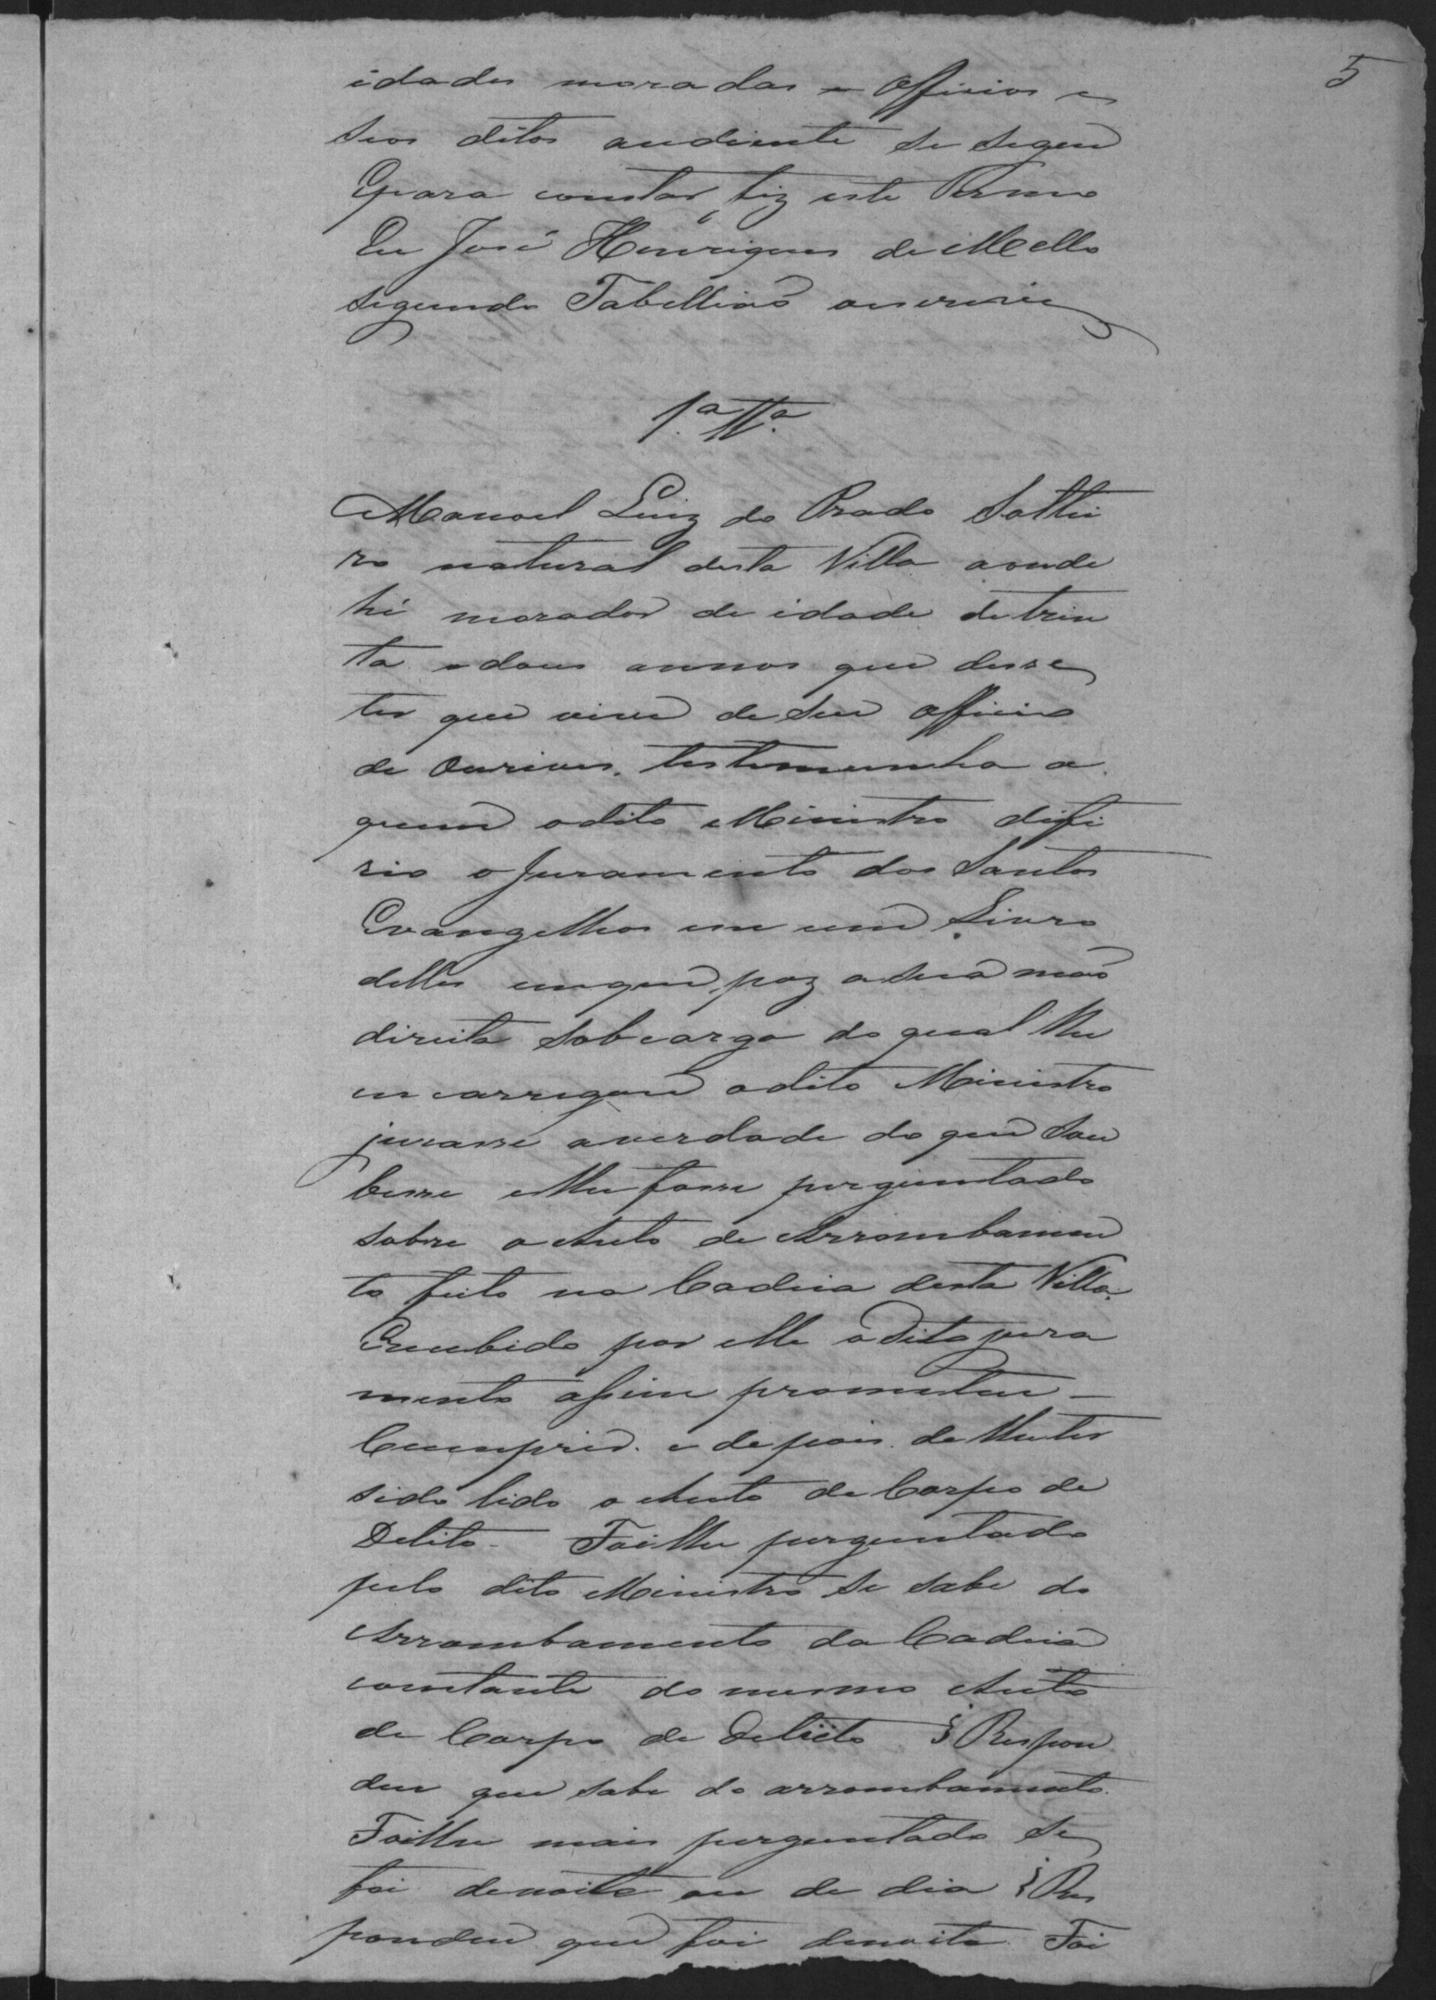 5
idades moradas e Officios e
seos ditos audiente se segeu
Epara constar fiz este Termo
Eu José Henriques de Mello
segundo Tabellião oescrevi

1.ª Tt.ª

Manoel Luiz do Prado Soltei
ro natural desta Villa aonde
hé morador de idade de trin
ta edous annos que disse
ter que vive de seu officio
de Ourives. testemunha a
quem odito Ministro difi
rio o Juramento dos Santos
Evangelhos em um Livro
delles emque poz asua mão
direita sobcargo do qual lhe
encarregou odito Ministro
jurasse averdade do que sou
besse elhe fosse perguntado
sobre o Auto de Arrombamen
to feito na Cadeia desta Villa.
Erecebido por elle odito jura
mento assim prometeu
Cumprir. e depois de lhe ter
sido lido o Auto de Corpo de
Delito - Foilhe perguntado
pelo dito Ministro se sabe do
Arrombamento da Cadeia
constante do mesmo Auto
de Corpo de Delicto Respon
deu que sabe do arrombamento.
Foilhe mais perguntado se
foi denoite ou de dia Res
pondeu que foi denoite Foi